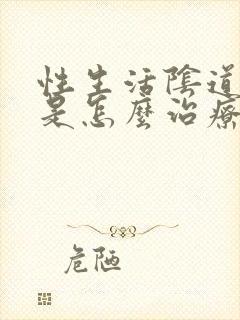 性生活陰道
是怎麼治療
危陋